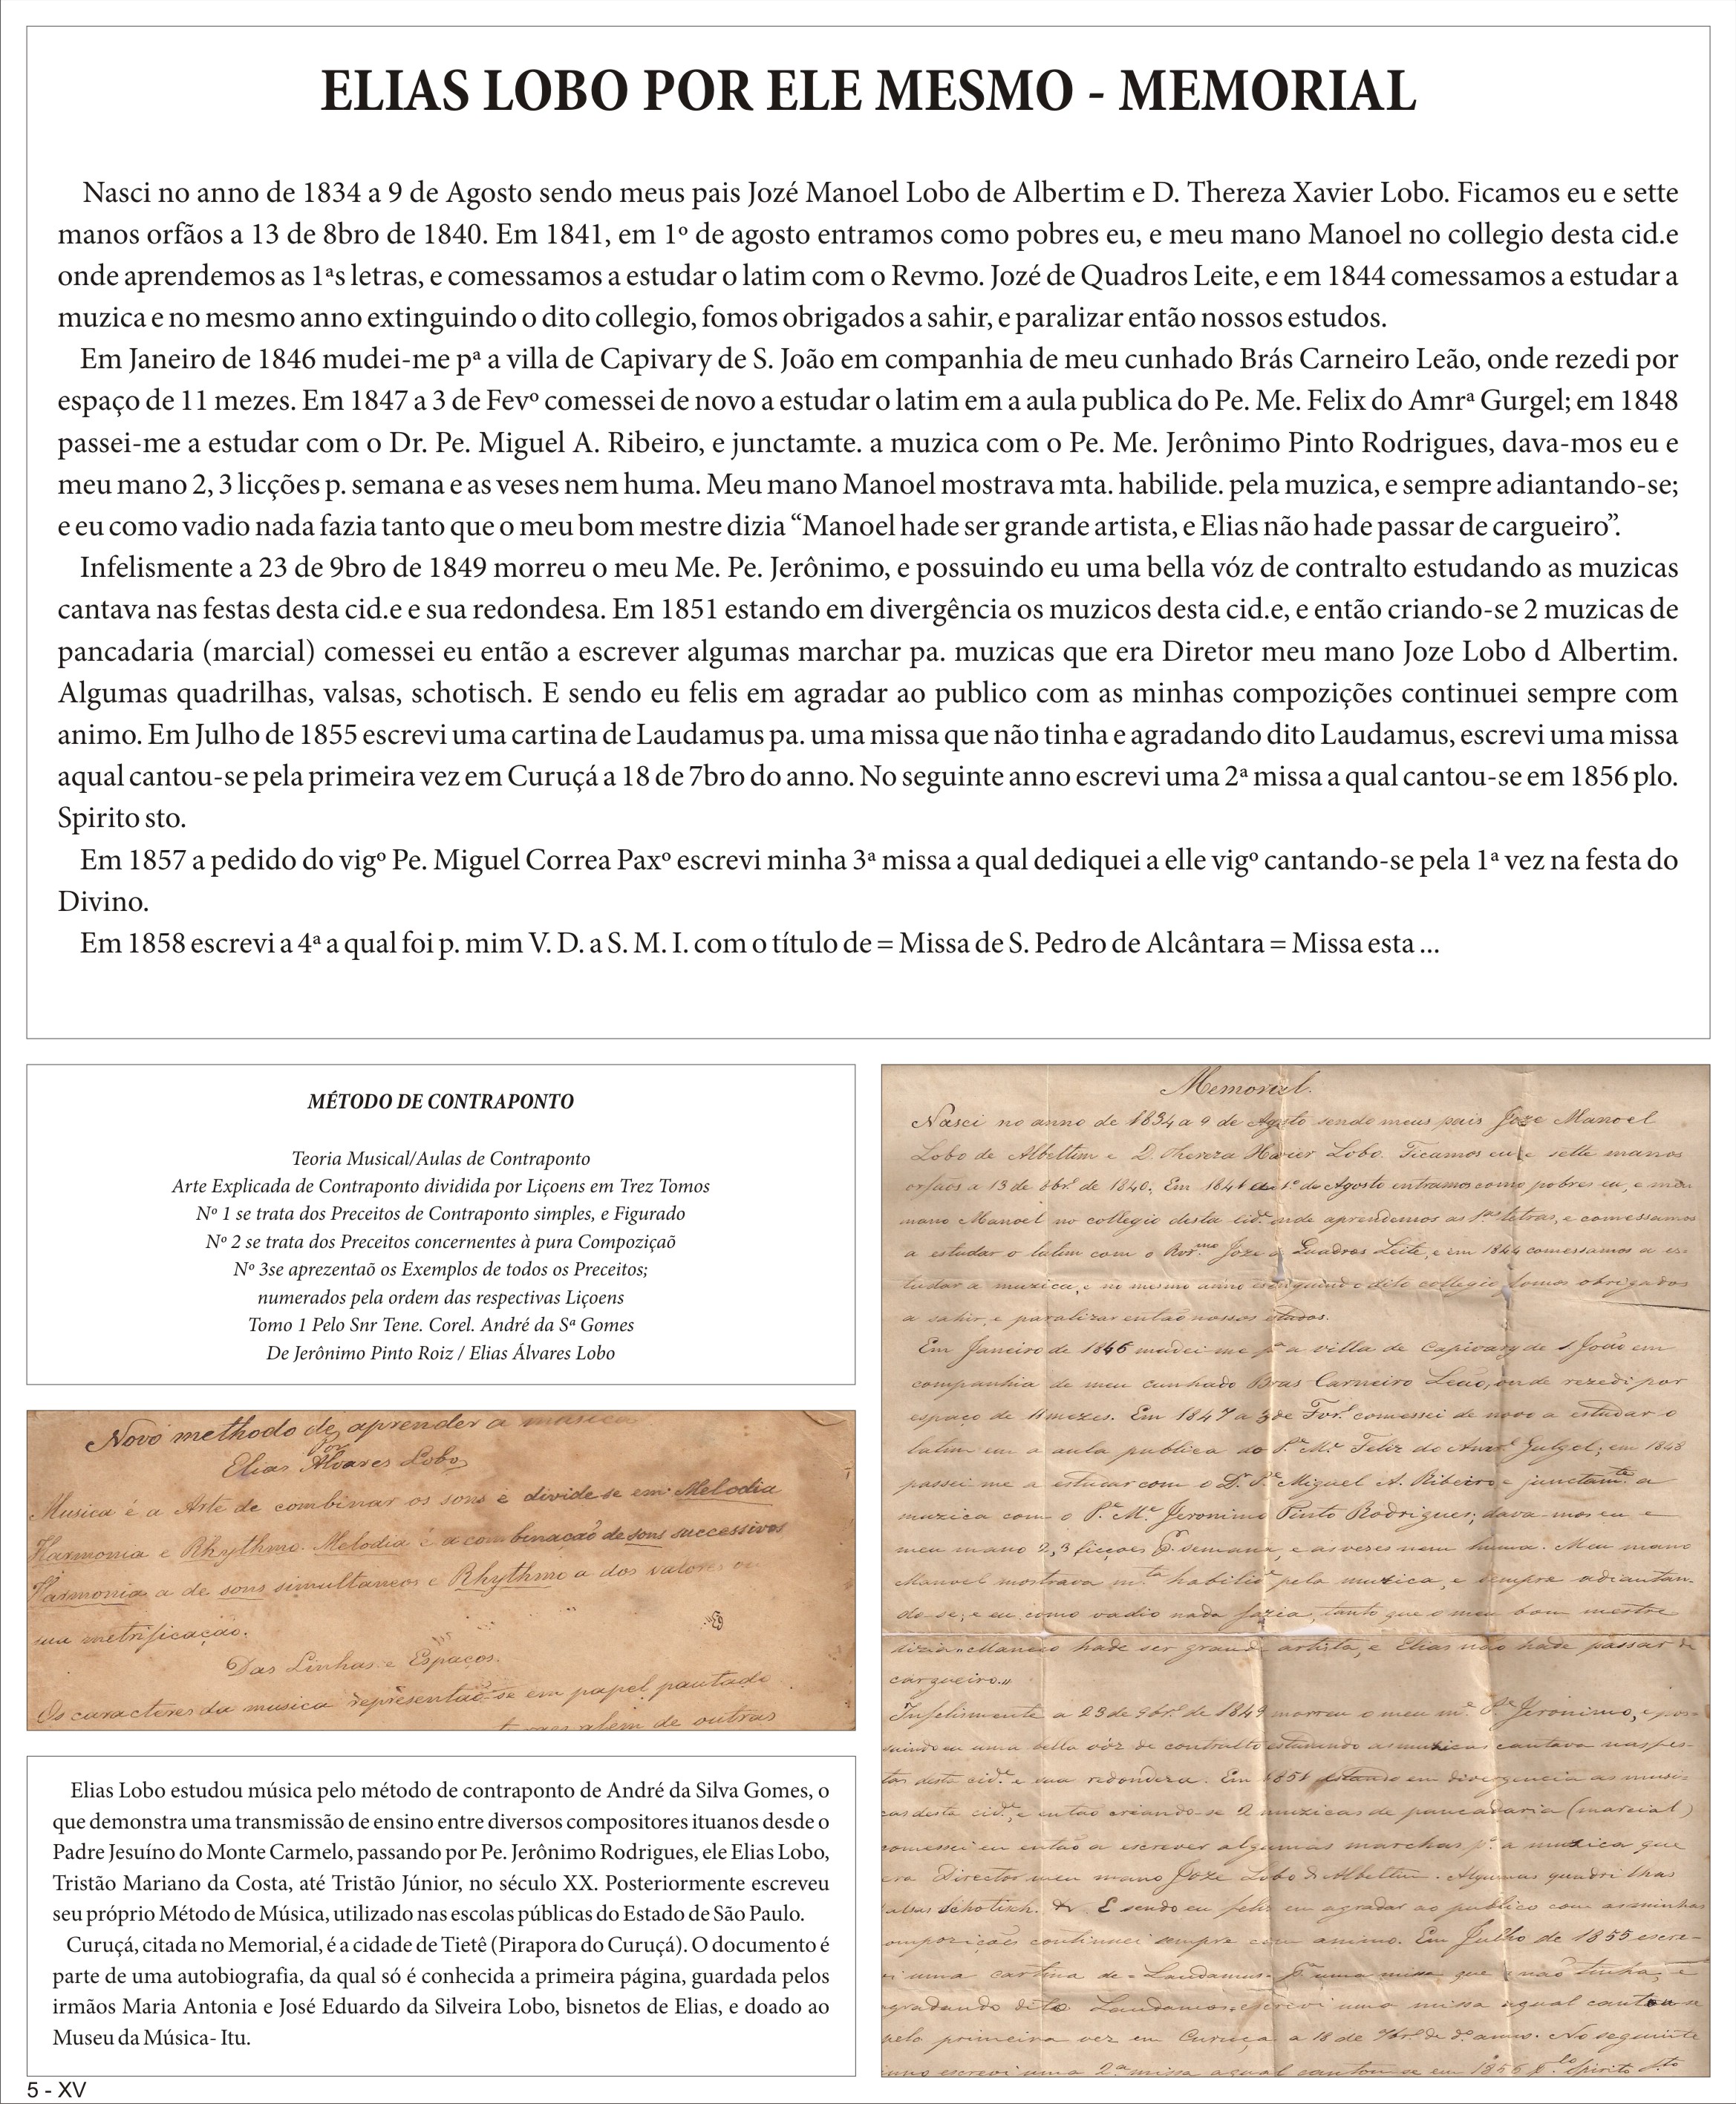 ELIAS LOBO POR ELE MESMO - MEMORIAL
Nasci no anno de 1834 a 9 de Agosto sendo meus pais Jozé Manoel Lobo de Albertim e D. Thereza Xavier Lobo. Ficamos eu e sette
manos orfãos a 13 de 8bro de 1840. Em 1841, em 1º de agosto entramos como pobres eu, e meu mano Manoel no collegio desta cid.e
onde aprendemos as 1ªs letras, e comessamos a estudar o latim com o Revmo. Jozé de Quadros Leite, e em 1844 comessamos a estudar a
muzica e no mesmo anno extinguindo o dito collegio, fomos obrigados a sahir, e paralizar então nossos estudos.
Em Janeiro de 1846 mudei-me pª a villa de Capivary de S. João em companhia de meu cunhado Brás Carneiro Leão, onde rezedi por
espaço de 11 mezes. Em 1847 a 3 de Fevº comessei de novo a estudar o latim em a aula publica do Pe. Me. Felix do Amrª Gurgel; em 1848
passei-me a estudar com o Dr. Pe. Miguel A. Ribeiro, e junctamte. a muzica com o Pe. Me. Jerônimo Pinto Rodrigues, dava-mos eu e
meu mano 2, 3 licções p. semana e as veses nem huma. Meu mano Manoel mostrava mta. habilide. pela muzica, e sempre adiantando-se;
e eu como vadio nada fazia tanto que o meu bom mestre dizia “Manoel hade ser grande artista, e Elias não hade passar de cargueiro”.
Infelismente a 23 de 9bro de 1849 morreu o meu Me. Pe. Jerônimo, e possuindo eu uma bella vóz de contralto estudando as muzicas
cantava nas festas desta cid.e e sua redondesa. Em 1851 estando em divergência os muzicos desta cid.e, e então criando-se 2 muzicas de
pancadaria (marcial) comessei eu então a escrever algumas marchar pa. muzicas que era Diretor meu mano Joze Lobo d Albertim.
Algumas quadrilhas, valsas, schotisch. E sendo eu felis em agradar ao publico com as minhas compozições continuei sempre com
animo. Em Julho de 1855 escrevi uma cartina de Laudamus pa. uma missa que não tinha e agradando dito Laudamus, escrevi uma missa
aqual cantou-se pela primeira vez em Curuçá a 18 de 7bro do anno. No seguinte anno escrevi uma 2ª missa a qual cantou-se em 1856 plo.
Spirito sto.
Em 1857 a pedido do vigº Pe. Miguel Correa Paxº escrevi minha 3ª missa a qual dediquei a elle vigº cantando-se pela 1ª vez na festa do
Divino.
Em 1858 escrevi a 4ª a qual foi p. mim V. D. a S. M. I. com o título de = Missa de S. Pedro de Alcântara = Missa esta ...
MÉTODO DE CONTRAPONTO
Teoria Musical/Aulas de Contraponto
Arte Explicada de Contraponto dividida por Liçoens em Trez Tomos
Nº 1 se trata dos Preceitos de Contraponto simples, e Figurado
Nº 2 se trata dos Preceitos concernentes à pura Compoziçaõ
Nº 3se aprezentaõ os Exemplos de todos os Preceitos;
numerados pela ordem das respectivas Liçoens
Tomo 1 Pelo Snr Tene. Corel. André da Sª Gomes
De Jerônimo Pinto Roiz / Elias Álvares Lobo
Novo methodo de aprender a musica
Por
Elias Alvares Lobo
Musica é a Arte de combinar os sons e divide-se em Melodia
Harmonia e Rhythmo. Melodia é a combinacaõ de sons successivos
Harmonia a de sons simultaneos e Rhythmo a dos valores ou
sua metrificação.
Das Linhas e Espaços.
Os caracteres da musica representaõ-se em papel pautado
alem de outras
Elias Lobo estudou música pelo método de contraponto de André da Silva Gomes, o
que demonstra uma transmissão de ensino entre diversos compositores ituanos desde o
Padre Jesuíno do Monte Carmelo, passando por Pe. Jerônimo Rodrigues, ele Elias Lobo,
Tristão Mariano da Costa, até Tristão Júnior, no século XX. Posteriormente escreveu
seu próprio Método de Música, utilizado nas escolas públicas do Estado de São Paulo.
Curuçá, citada no Memorial, é a cidade de Tietê (Pirapora do Curuçá). O documento é
parte de uma autobiografia, da qual só é conhecida a primeira página, guardada pelos
irmãos Maria Antonia e José Eduardo da Silveira Lobo, bisnetos de Elias, e doado ao
Museu da Música- Itu.
Memorial.
Nasci no anno de 1834 a 9 de Agosto sendo meus pais Joze Manoel
Lobo de Albettim e D. Thereza Xavier Lobo. Ficamos eu e sette manos
orfaos a 13 de 8br.º de 1840. Em 1841 a 1º de Agosto entramos como pobres eu, e meu
mano Manoel no collegio desta cid.e onde aprendemos as 1.as letras, e comessamos
a estudar o latim com o Rvr.mo Joze de Quadros Leite, e em 1844 comessamos a es-
tudar a muzica, e no mesmo anno extinguindo o dito collegio, fomos obrigados
a sahir, e paralizar então nossos estudos.
Em Janeiro de 1846 mudei-me pª a villa de Capivary de S João em
companhia de meu cunhado Bras Carneiro Leão, onde rezedi por
espaço de 11 mezes. Em 1847 a 3 de Fvr.º comessei de novo a estudar o
latim em a aula publica do P.e M.e Feliz do Amr.l Gulgel; em 1848
passei me a estudar com o D.r P.e Miguel A. Ribeiro e junctam.te a
muzica com o P.e M.e Jeronimo Pinto Rodrigues; dava mos eu e
meu mano 2, 3 licçoes p. semana, e as vezes nem huma. Meu mano
Manoel mostrava m.ta habilid.e pela muzica, e sempre adiantan-
do-se; e eu como vadio nada fazia, tanto que o meu bom mestre
dizia "Manoel hade ser grande artista, e Elias não hade passar de
cargueiro."
Infelismente a 23 de 9br.º de 1849 morreu o meu m.e P.e Jeronimo, e pos-
suindo eu uma bella vóz de contralto estudando as muzicas cantava nas fes-
tas desta cid.e e sua redondeza. Em 1851 estando em divergencia os musi-
cos desta cid.e, e então creando-se 2 muzicas de pancadaria (marcial)
comessei eu então a escrever algumas marchas p.ª a muzica que
era Director meu mano Joze Lobo d'Albettim. Algumas quadrilhas
valsas Schotisch. &. E sendo eu feliz em agradar ao publico com as minhas
compozições continuei sempre com animo. Em Julho de 1855 escre-
vi uma cartina de Laudamus p.ª uma missa que não tinha, e
agradando dito Laudamus, escrevi uma missa aqual cantou se
pela primeira vez em Curuça a 18 de 7br.º de d.º anno. No seguinte
anno escrevi uma 2.ª missa aqual cantou-se em 1856 p.lo Spirito S.to
5 - XV